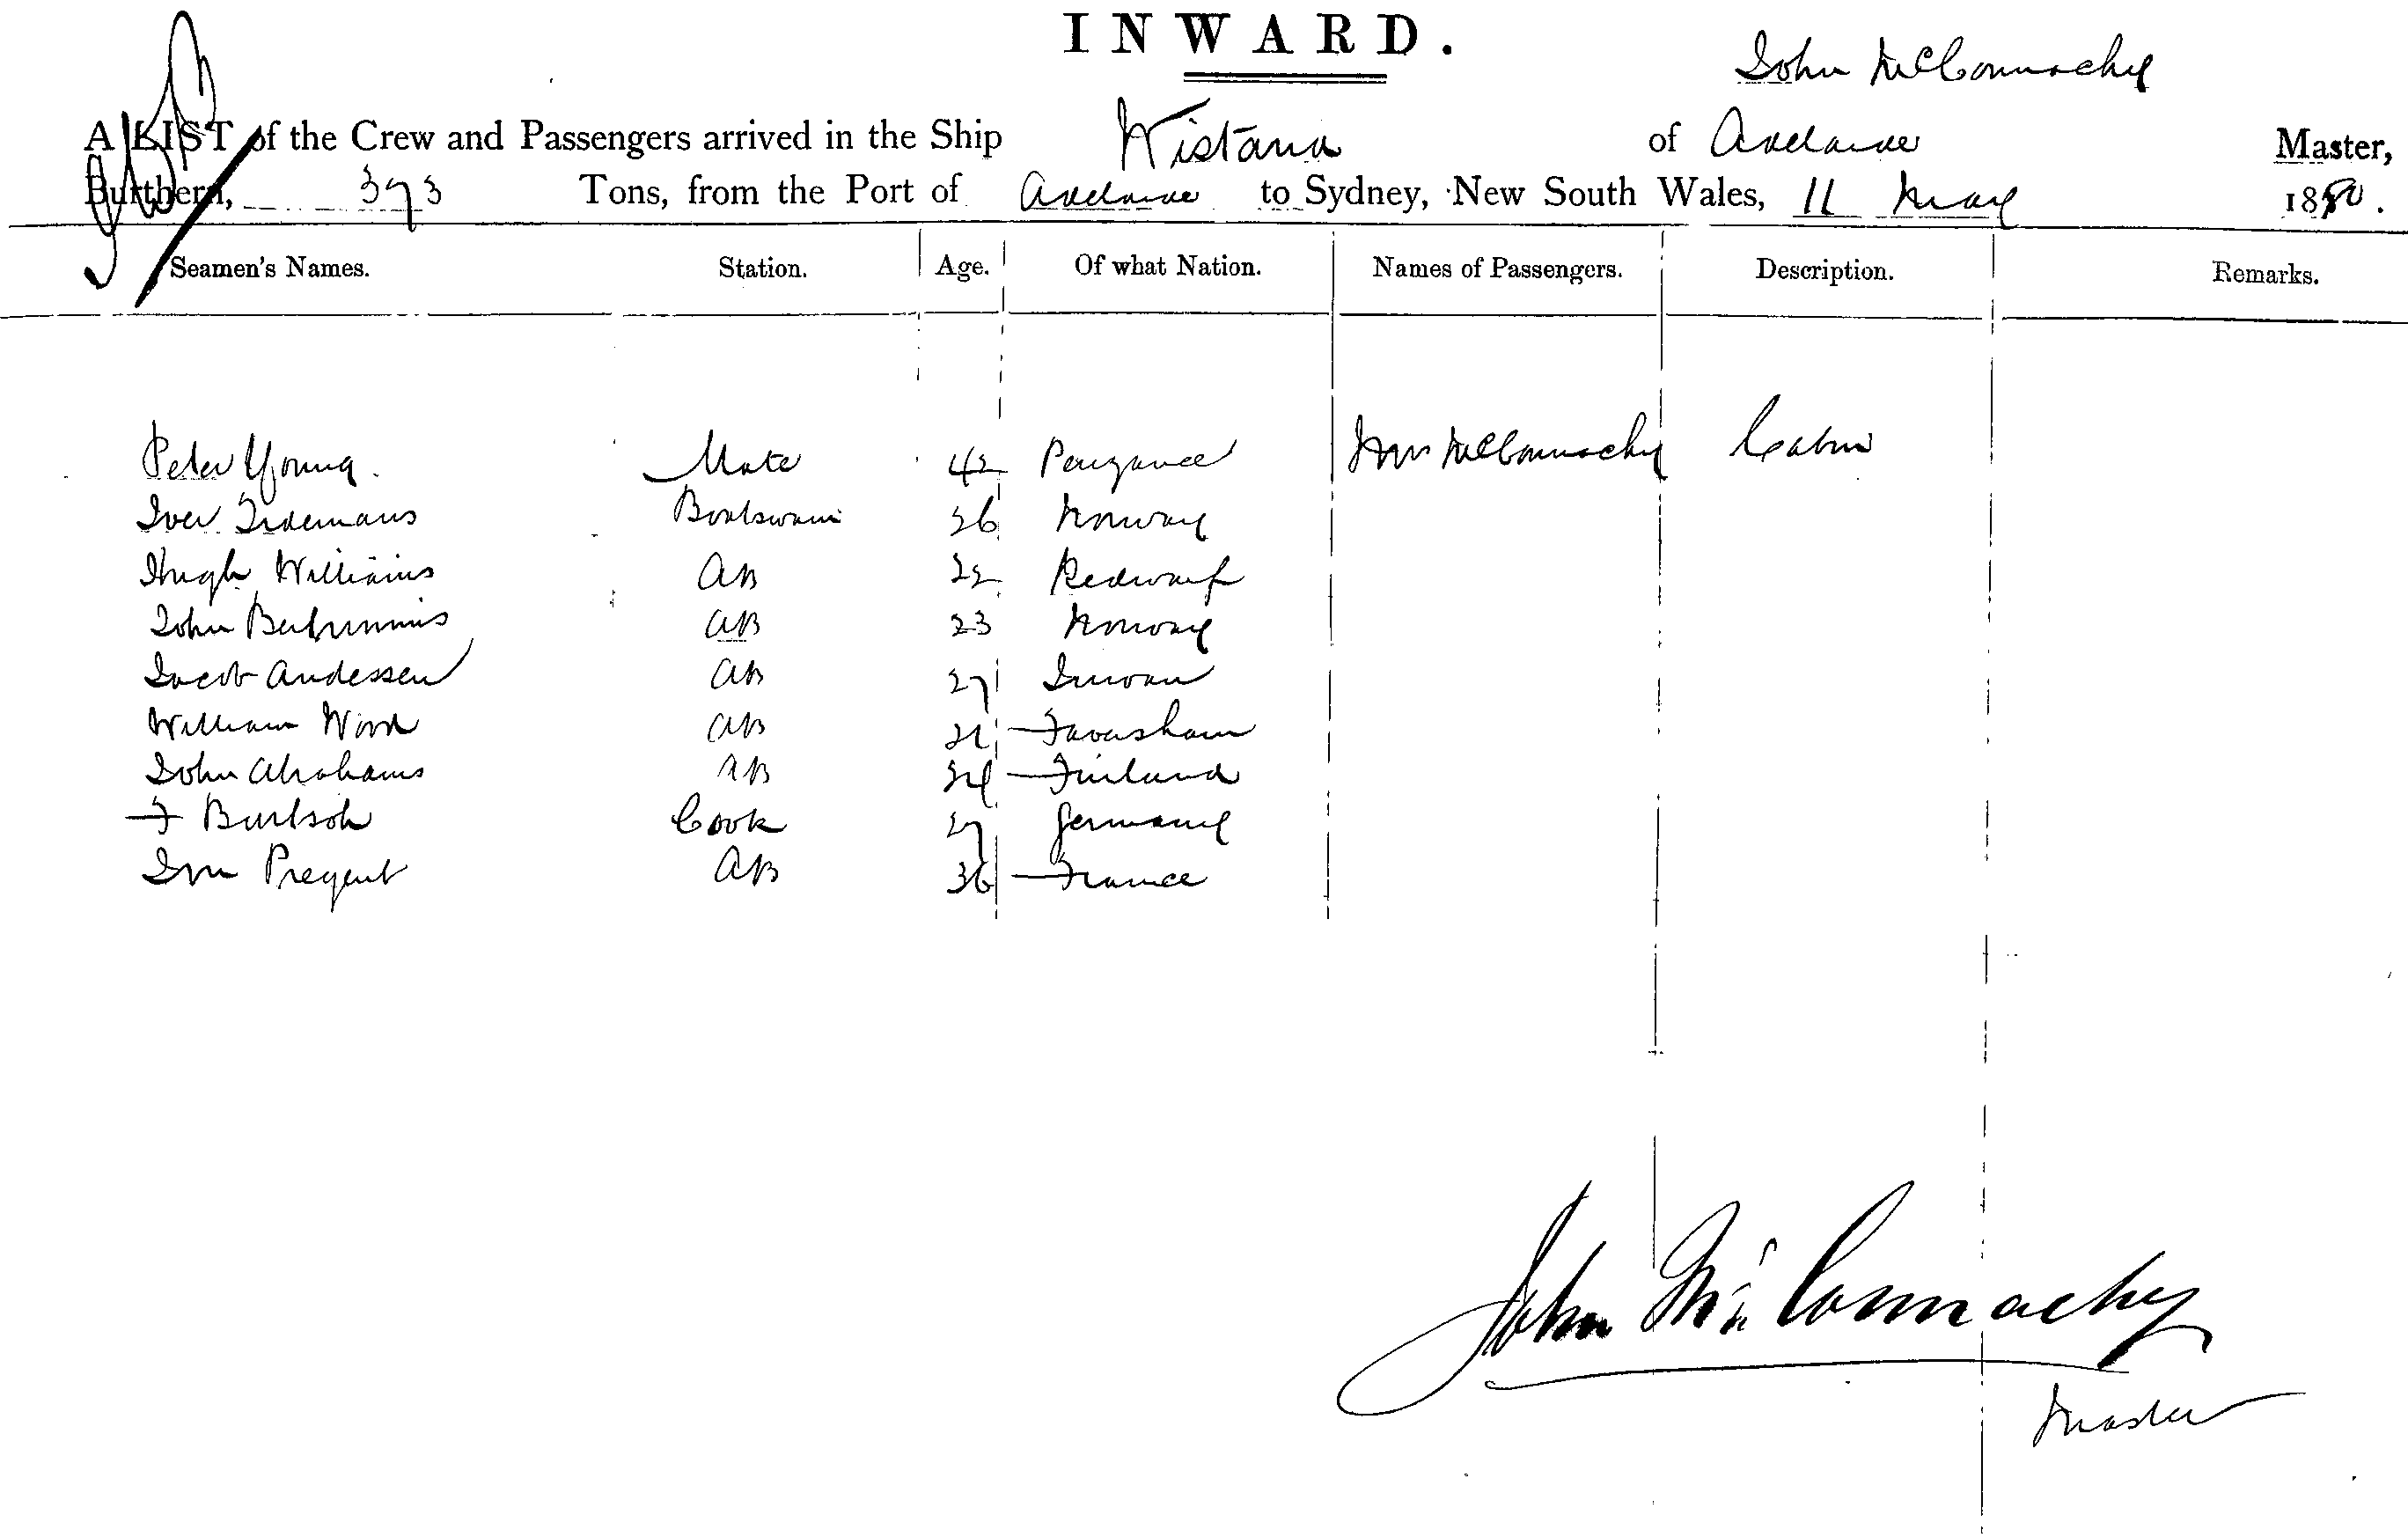 INWARD.
John McConnachy
A LIST of the Crew and Passengers arrived in the Ship Kistana of Adelaide Master,
Burthen, 393 Tons, from the Port of Adelaide to Sydney, New South Wales, 11 May 1880.
Seamen's Names. Station. Age. Of what Nation. Names of Passengers. Description. Remarks.
Peter Young. Mate 42 Penzance Mrs McConnachy Cabin
Iver Boatswain 26 Norway
Hugh Williams AB 22
John AB 23 Norway
Jacob Andessen AB 27
William Wood AB 21 Faversham
John Abrahams AB 24 Finland
F Cook 27 Germany
Pregent AB 36 France
John McConnachy
Master